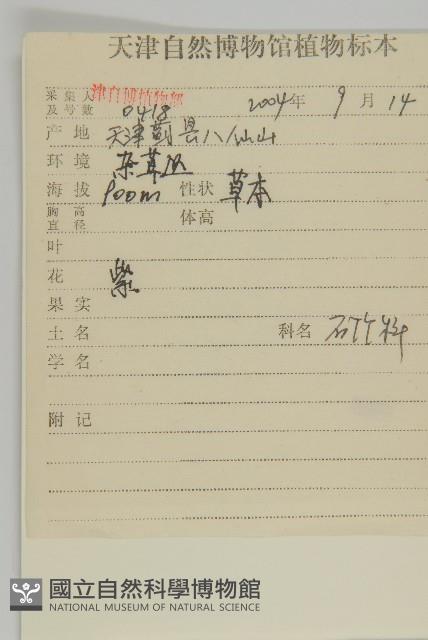 天津自然博物馆植物标本
采集人及号数 津自博植物部 0418 2004年 9月 14
产地 天津蓟县八仙山
环境 杂草丛
海拔 800m 性状 草本
胸高直径 体高
叶
花 紫
果实
土名 科名 石竹科
学名
附记
國立自然科學博物館
NATIONAL MUSEUM OF NATURAL SCIENCE